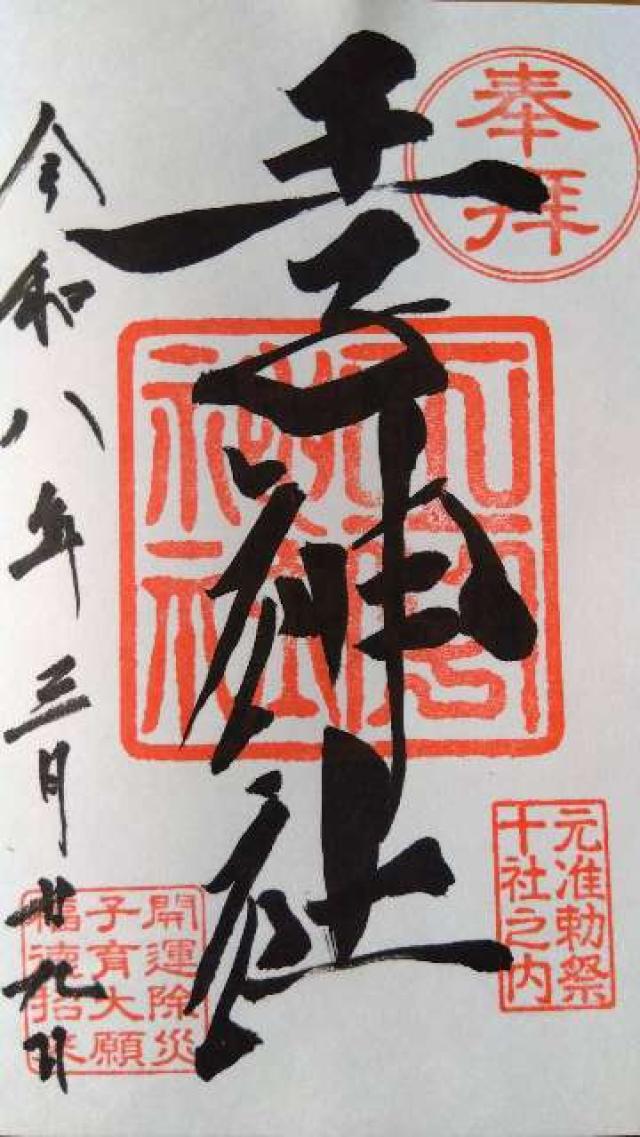 奉拝
元准勅祭
十社之内
王子神社
開運除災
子育大願
福徳招来
令和八年三月廿九日